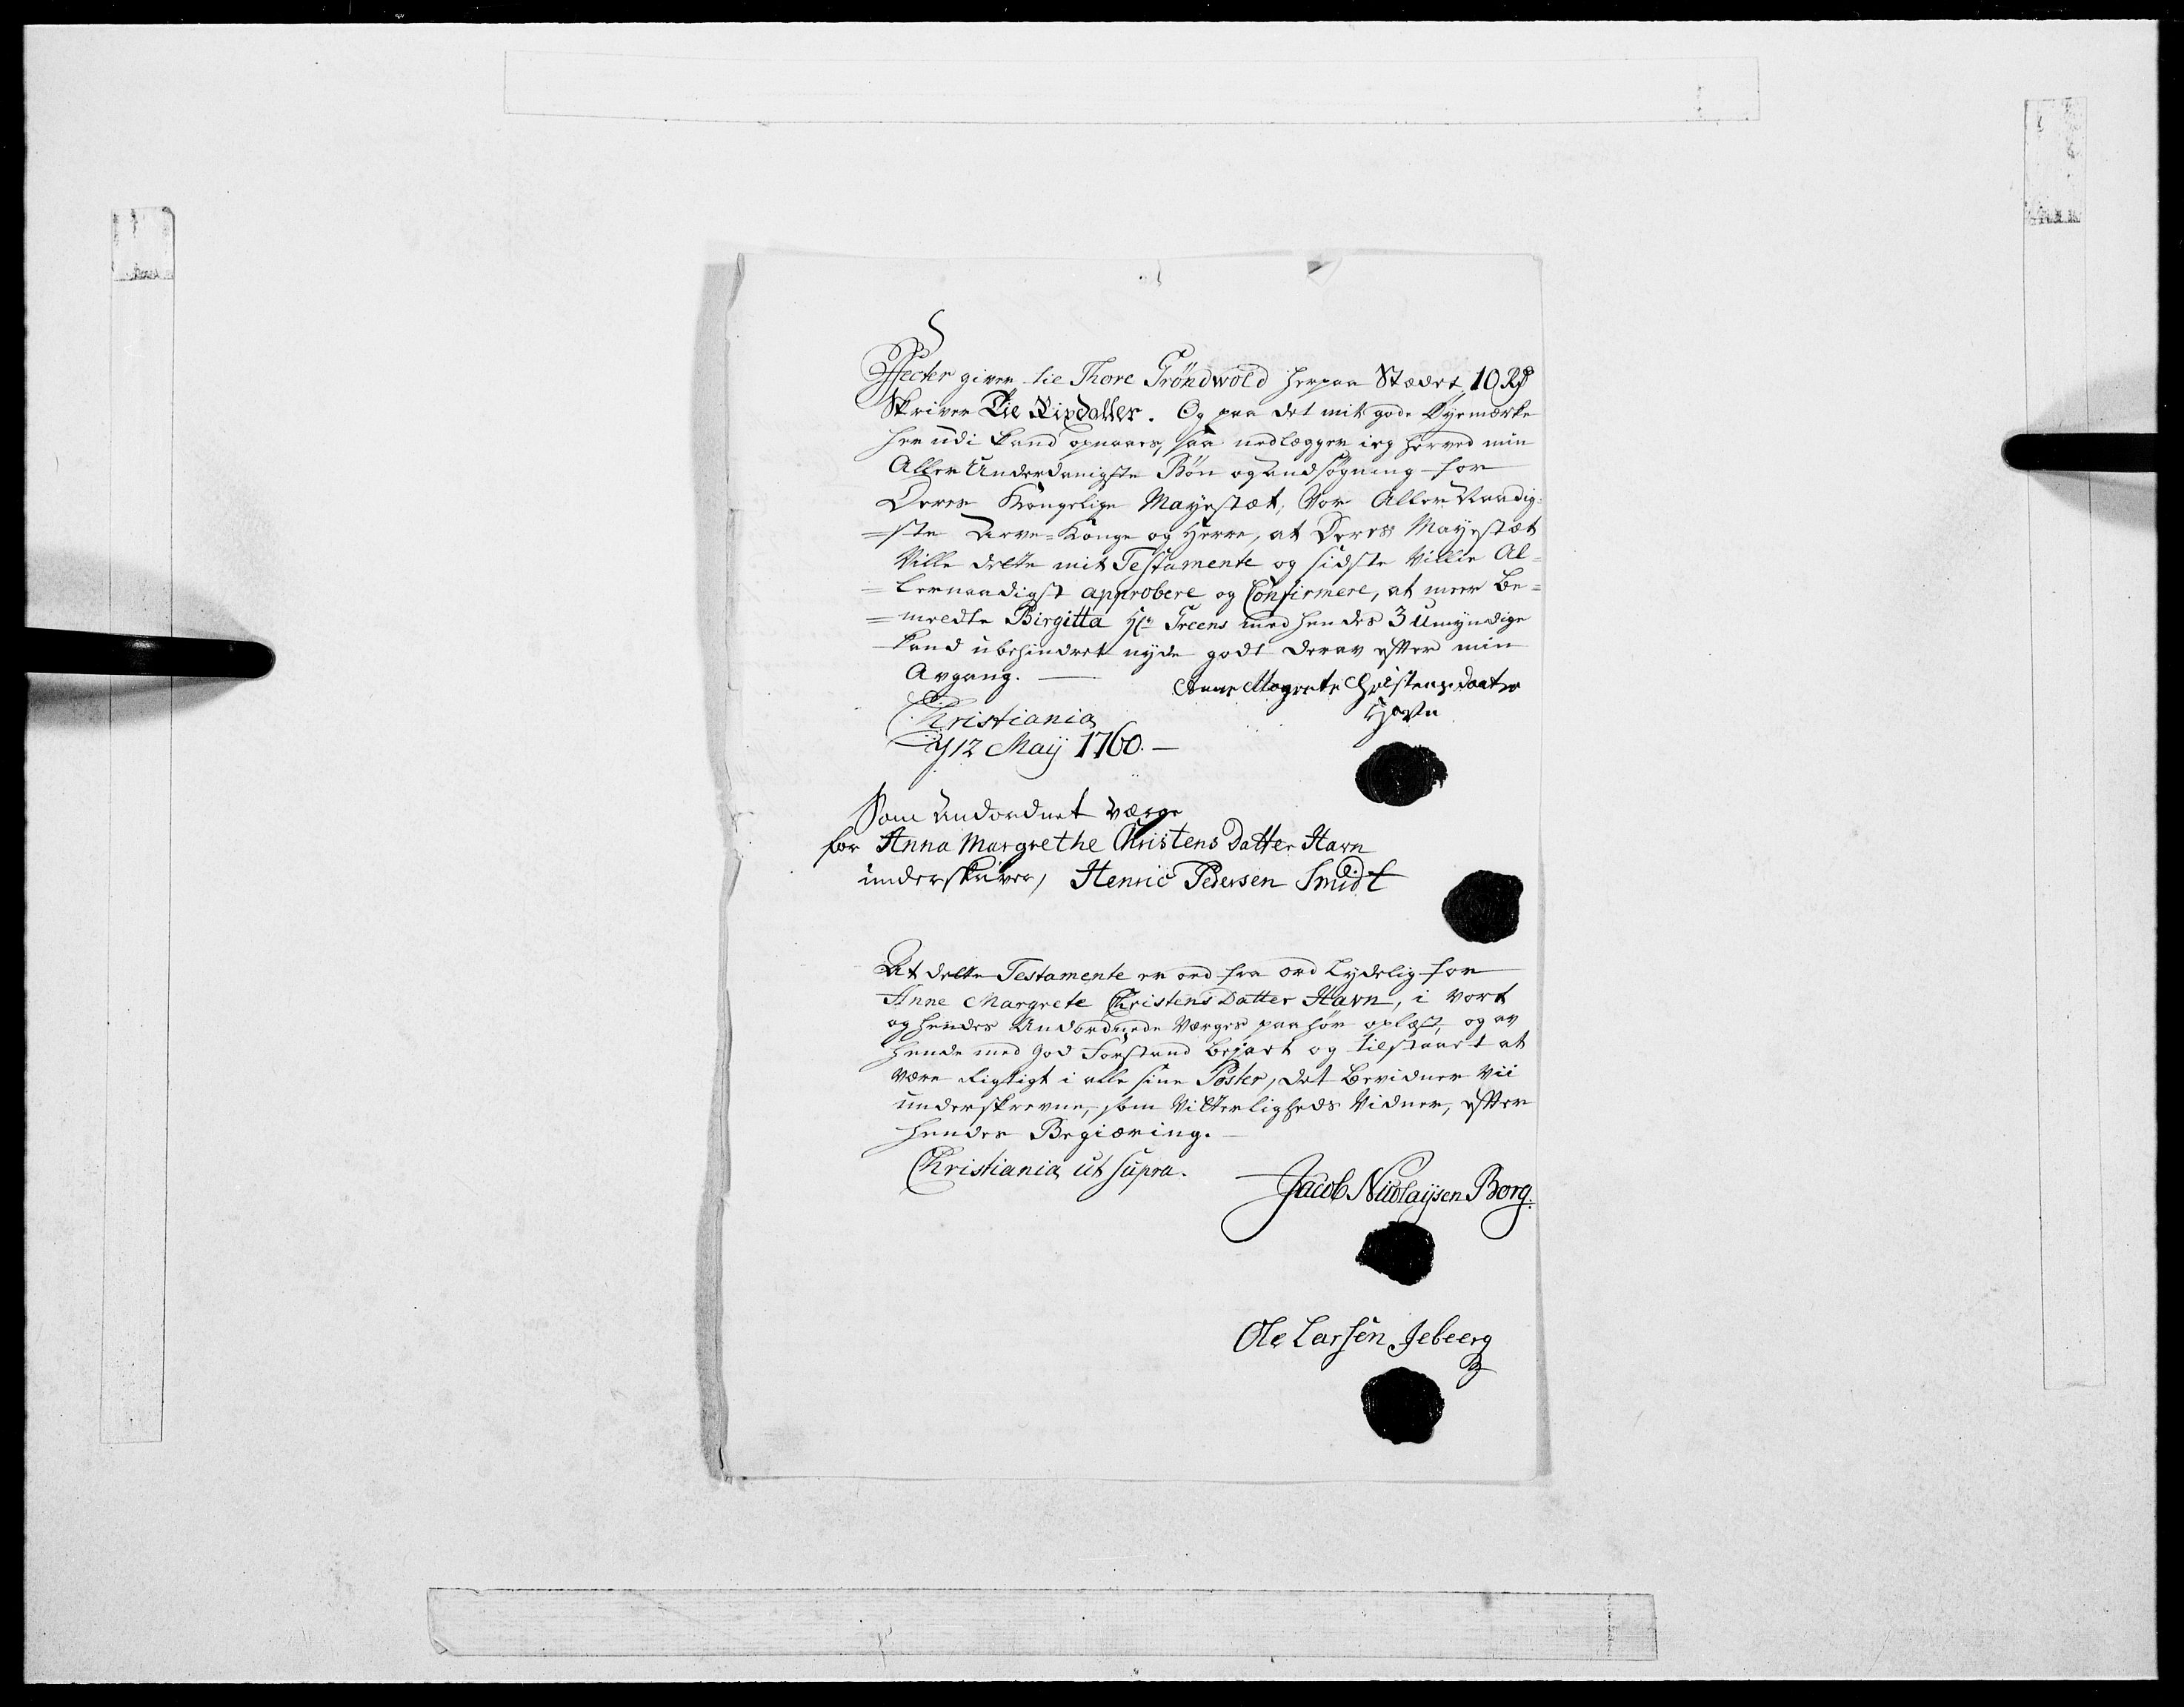 Effecter given til Thore Gröndwold herpaa Stædet, 10 Rd
Skriver Tie Rixdaller. Og paa det mit gode Øyemærke
her udi kand opnaaes, saa nedlægger ieg herved min
Aller Underdanigste Bön og Andsögning for
Deres Kongelige Mayestæt, Vor Aller Naadig-
=ste Arve=Konge og Herre, at Deres Mayestæt
Ville dette mit Testamente og sidste Villie Al=
=lernaadigst approbere og Confirmere, at meer be=
=meldte Birgitta Treens med hendes 3 Umyndige
kand ubehindret nyde godt derav efter min
Avgang. —
Anne Magrete Christensdaatter
Havn
Christiania
d 12 Maij 1760. —
Som Andordnet værge
for Anna Margrethe Christens Datter Havn
underskriver, Henric Pedersen Smidt
At dette Testamente er ord fra ord Lydelig for
Anne Margrete Christens Datter Havn, i vort
og hendes Andordnede Værges paahör oplæst, og av
hende med god Forstand bejaet og tilstaaet at
være Rigtigt i alle sine Poster, det bevidner Vii
underskrevne, som Vitterligheds Vidner, efter
hendes Begiæring. —
Christiania ut supra.
Jacob Nicolaysen Borg.
Ole Larsen Jebeerg